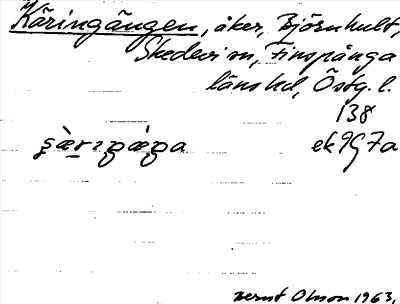 Käringängen, åker, Björnhult,
Skedevi sn, Finspånga
länshd, Östg. l.
138
ek 9G7a
Bernt Olsson 1963.